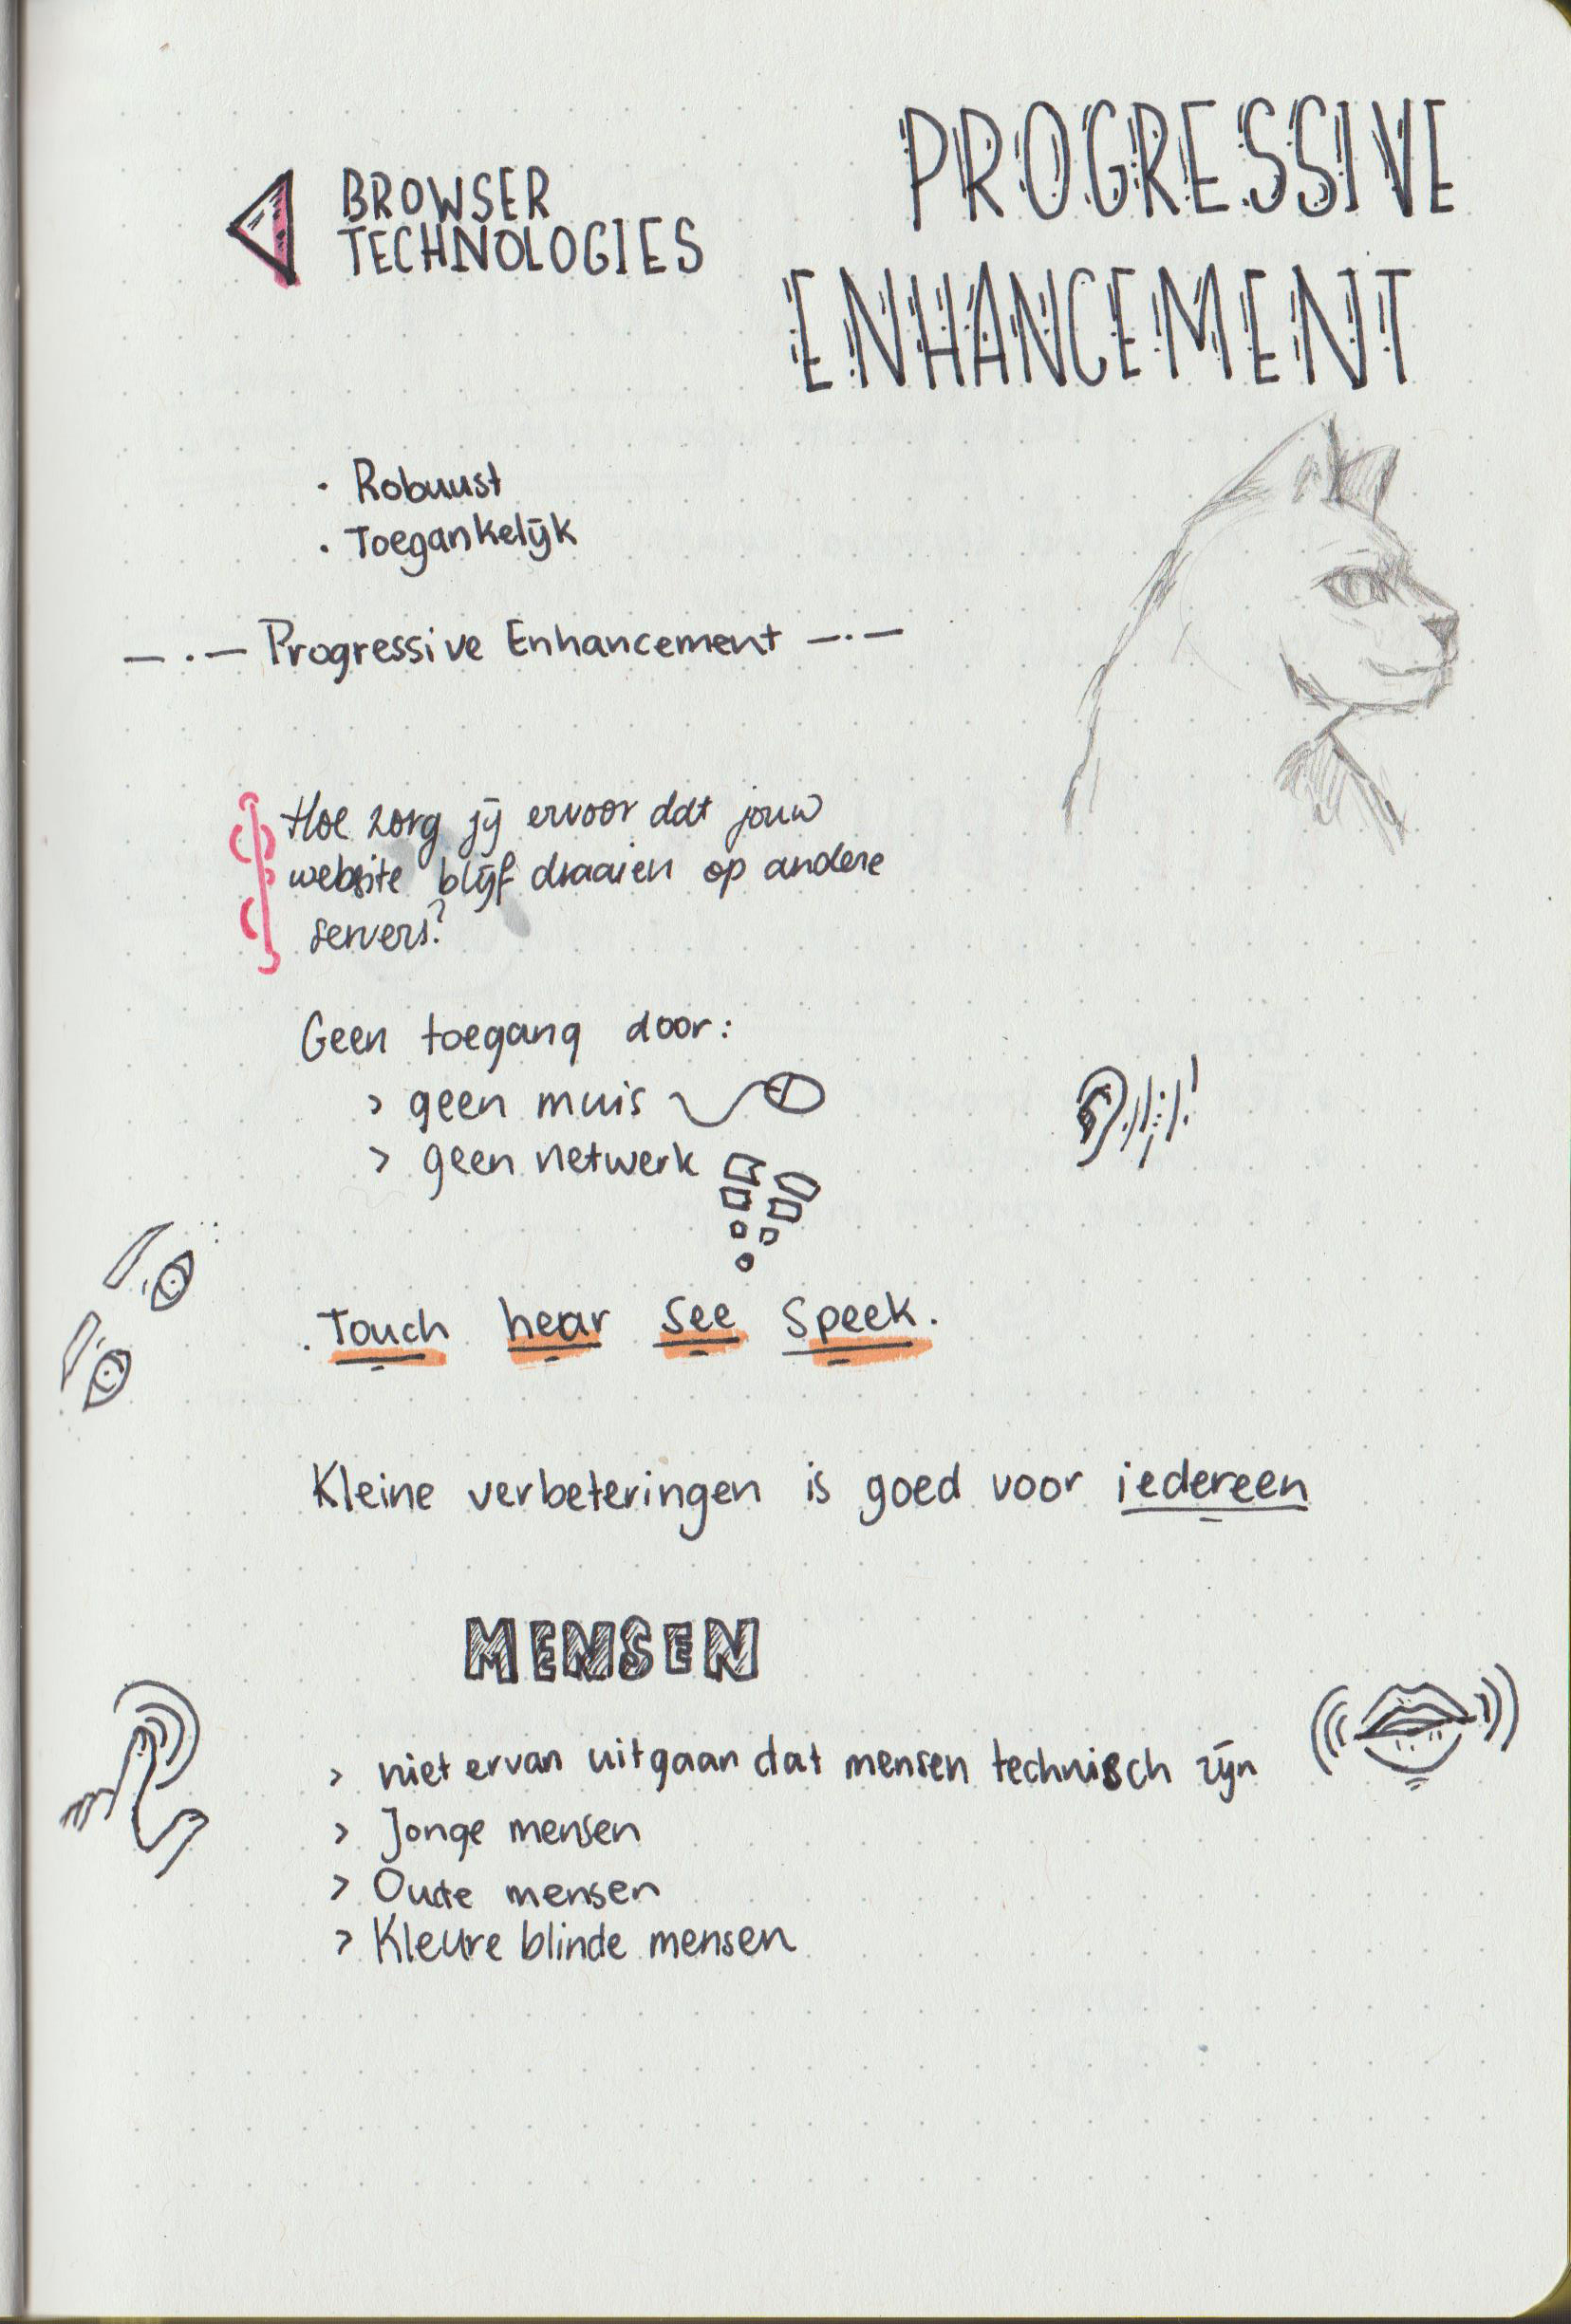 BROWSER
TECHNOLOGIES
PROGRESSIVE
ENHANCEMENT
· Robuust
· Toegankelijk
— · — Progressive Enhancement — · —
Hoe zorg jij ervoor dat jouw
website blijf draaien op andere
servers?
Geen toegang door:
> geen muis
> geen netwerk
. Touch hear see speek.
Kleine verbeteringen is goed voor iedereen
MENSEN
> niet ervan uitgaan dat mensen technisch zijn
> Jonge mensen
> Oude mensen
> Kleure blinde mensen